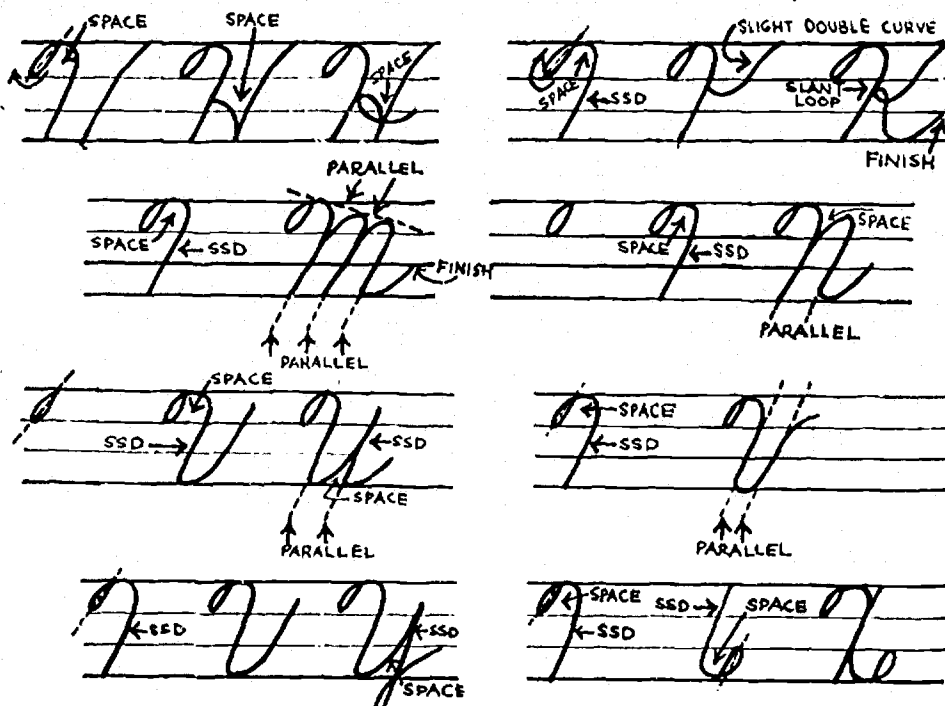 SPACE
SPACE
SPACE
SLIGHT DOUBLE CURVE
SPACE
SSD
SLANT
LOOP
FINISH
PARALLEL
SPACE
SSD
FINISH
PARALLEL
SPACE
SSD
SPACE
PARALLEL
SPACE
SSD
SSD
SPACE
PARALLEL
SPACE
SSD
PARALLEL
SSD
SSD
SPACE
SPACE
SSD
SSD
SPACE